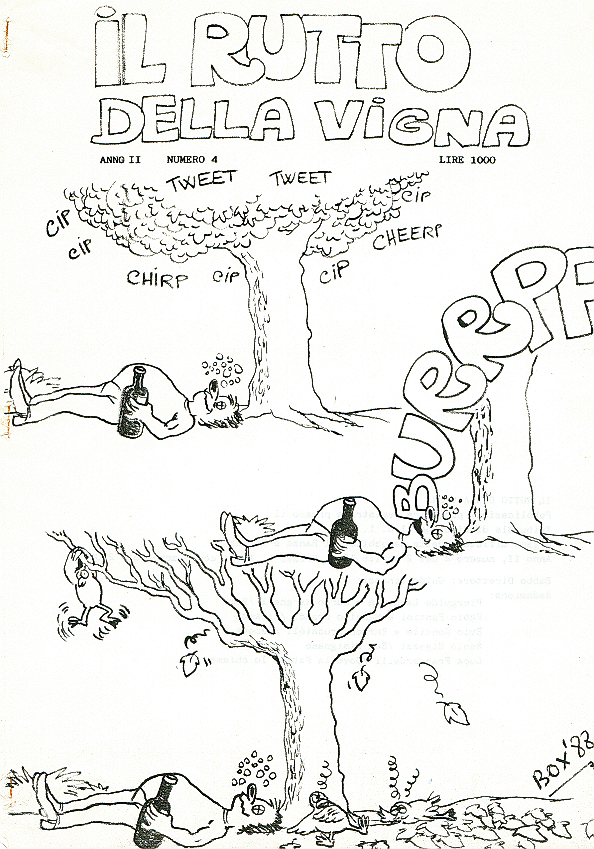 iL RUTTO
DELLA ViGNA
ANNO II NUMERO 4 LIRE 1000
TWEET TWEET
CiP
CiP
CiP
CHEERP
CHIRP CiP CiP
BURRRPP
BOX '88